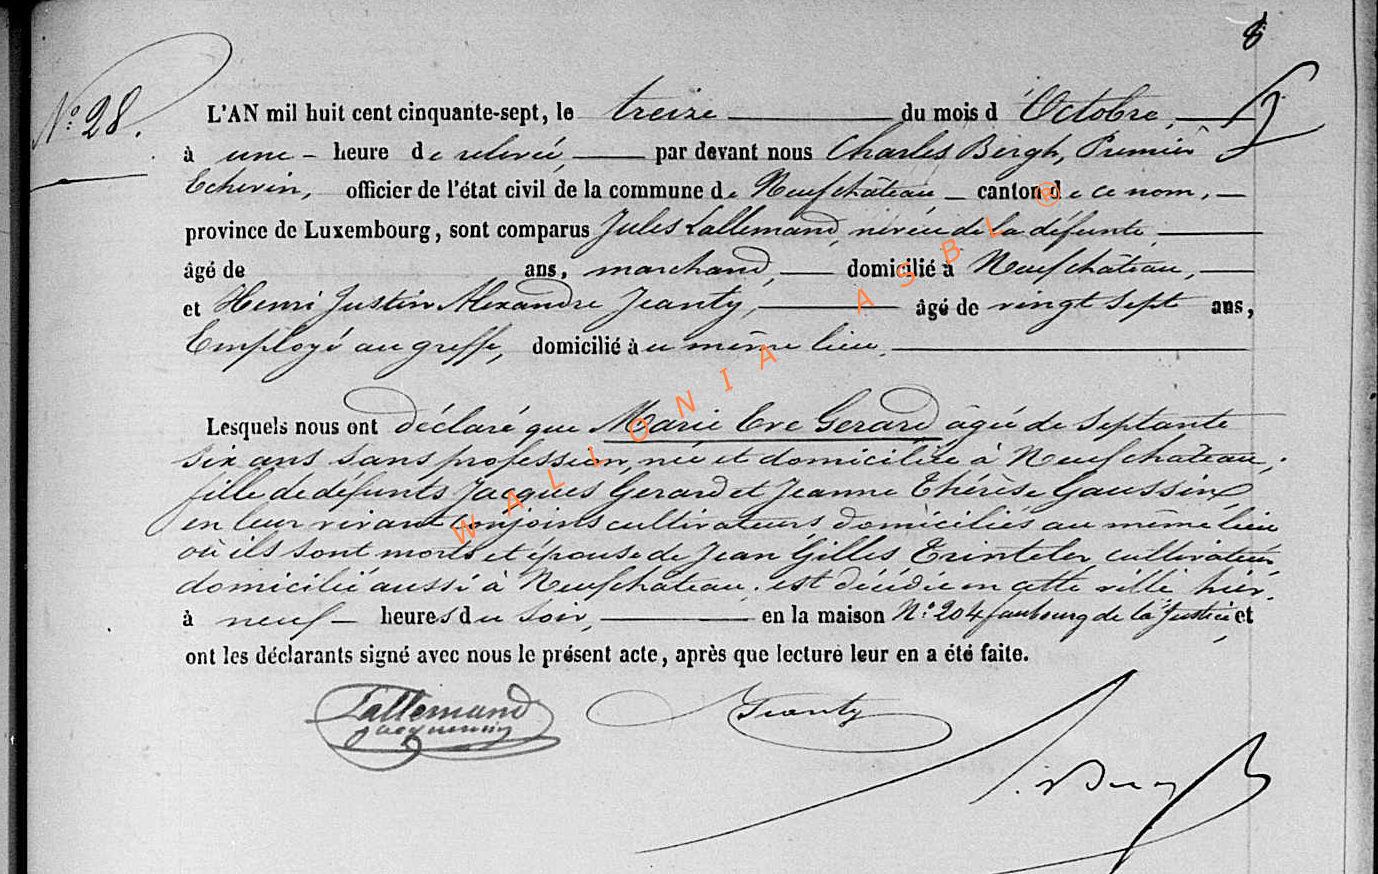 8
N.° 28.
L'AN mil huit cent cinquante-sept, le treize du mois d'Octobre,
à une heure de relevée, par devant nous Charles Bergh, Premier
Echevin, officier de l'état civil de la commune de Neufchâteau canton de ce nom,
province de Luxembourg, sont comparus Jules Lallemand, neveu de la défunte,
âgé de ans, marchand, domicilié à Neufchâteau,
et Henri Justin Alexandre Jeanty, âgé de vingt sept ans,
Employé au greffe, domicilié au même lieu.
Lesquels nous ont déclaré que Marie Eve Gerard âgée de septante
six ans sans profession, née et domiciliée à Neufchâteau,
fille de défunts Jacques Gerard et Jeanne Thérèse Gaussin
en leur vivant conjoints cultivateurs domiciliés au même lieu
où ils sont morts et épouse de Jean Gilles Trinteler, cultivateur,
domicilié aussi à Neufchâteau, est décédée en cette ville hier,
à neuf heures du soir, en la maison N.° 204 faubourg de la Justice, et
ont les déclarants signé avec nous le présent acte, après que lecture leur en a été faite.
Lallemand Jeanty
Jacquemin
WALLONIA ASBL ®